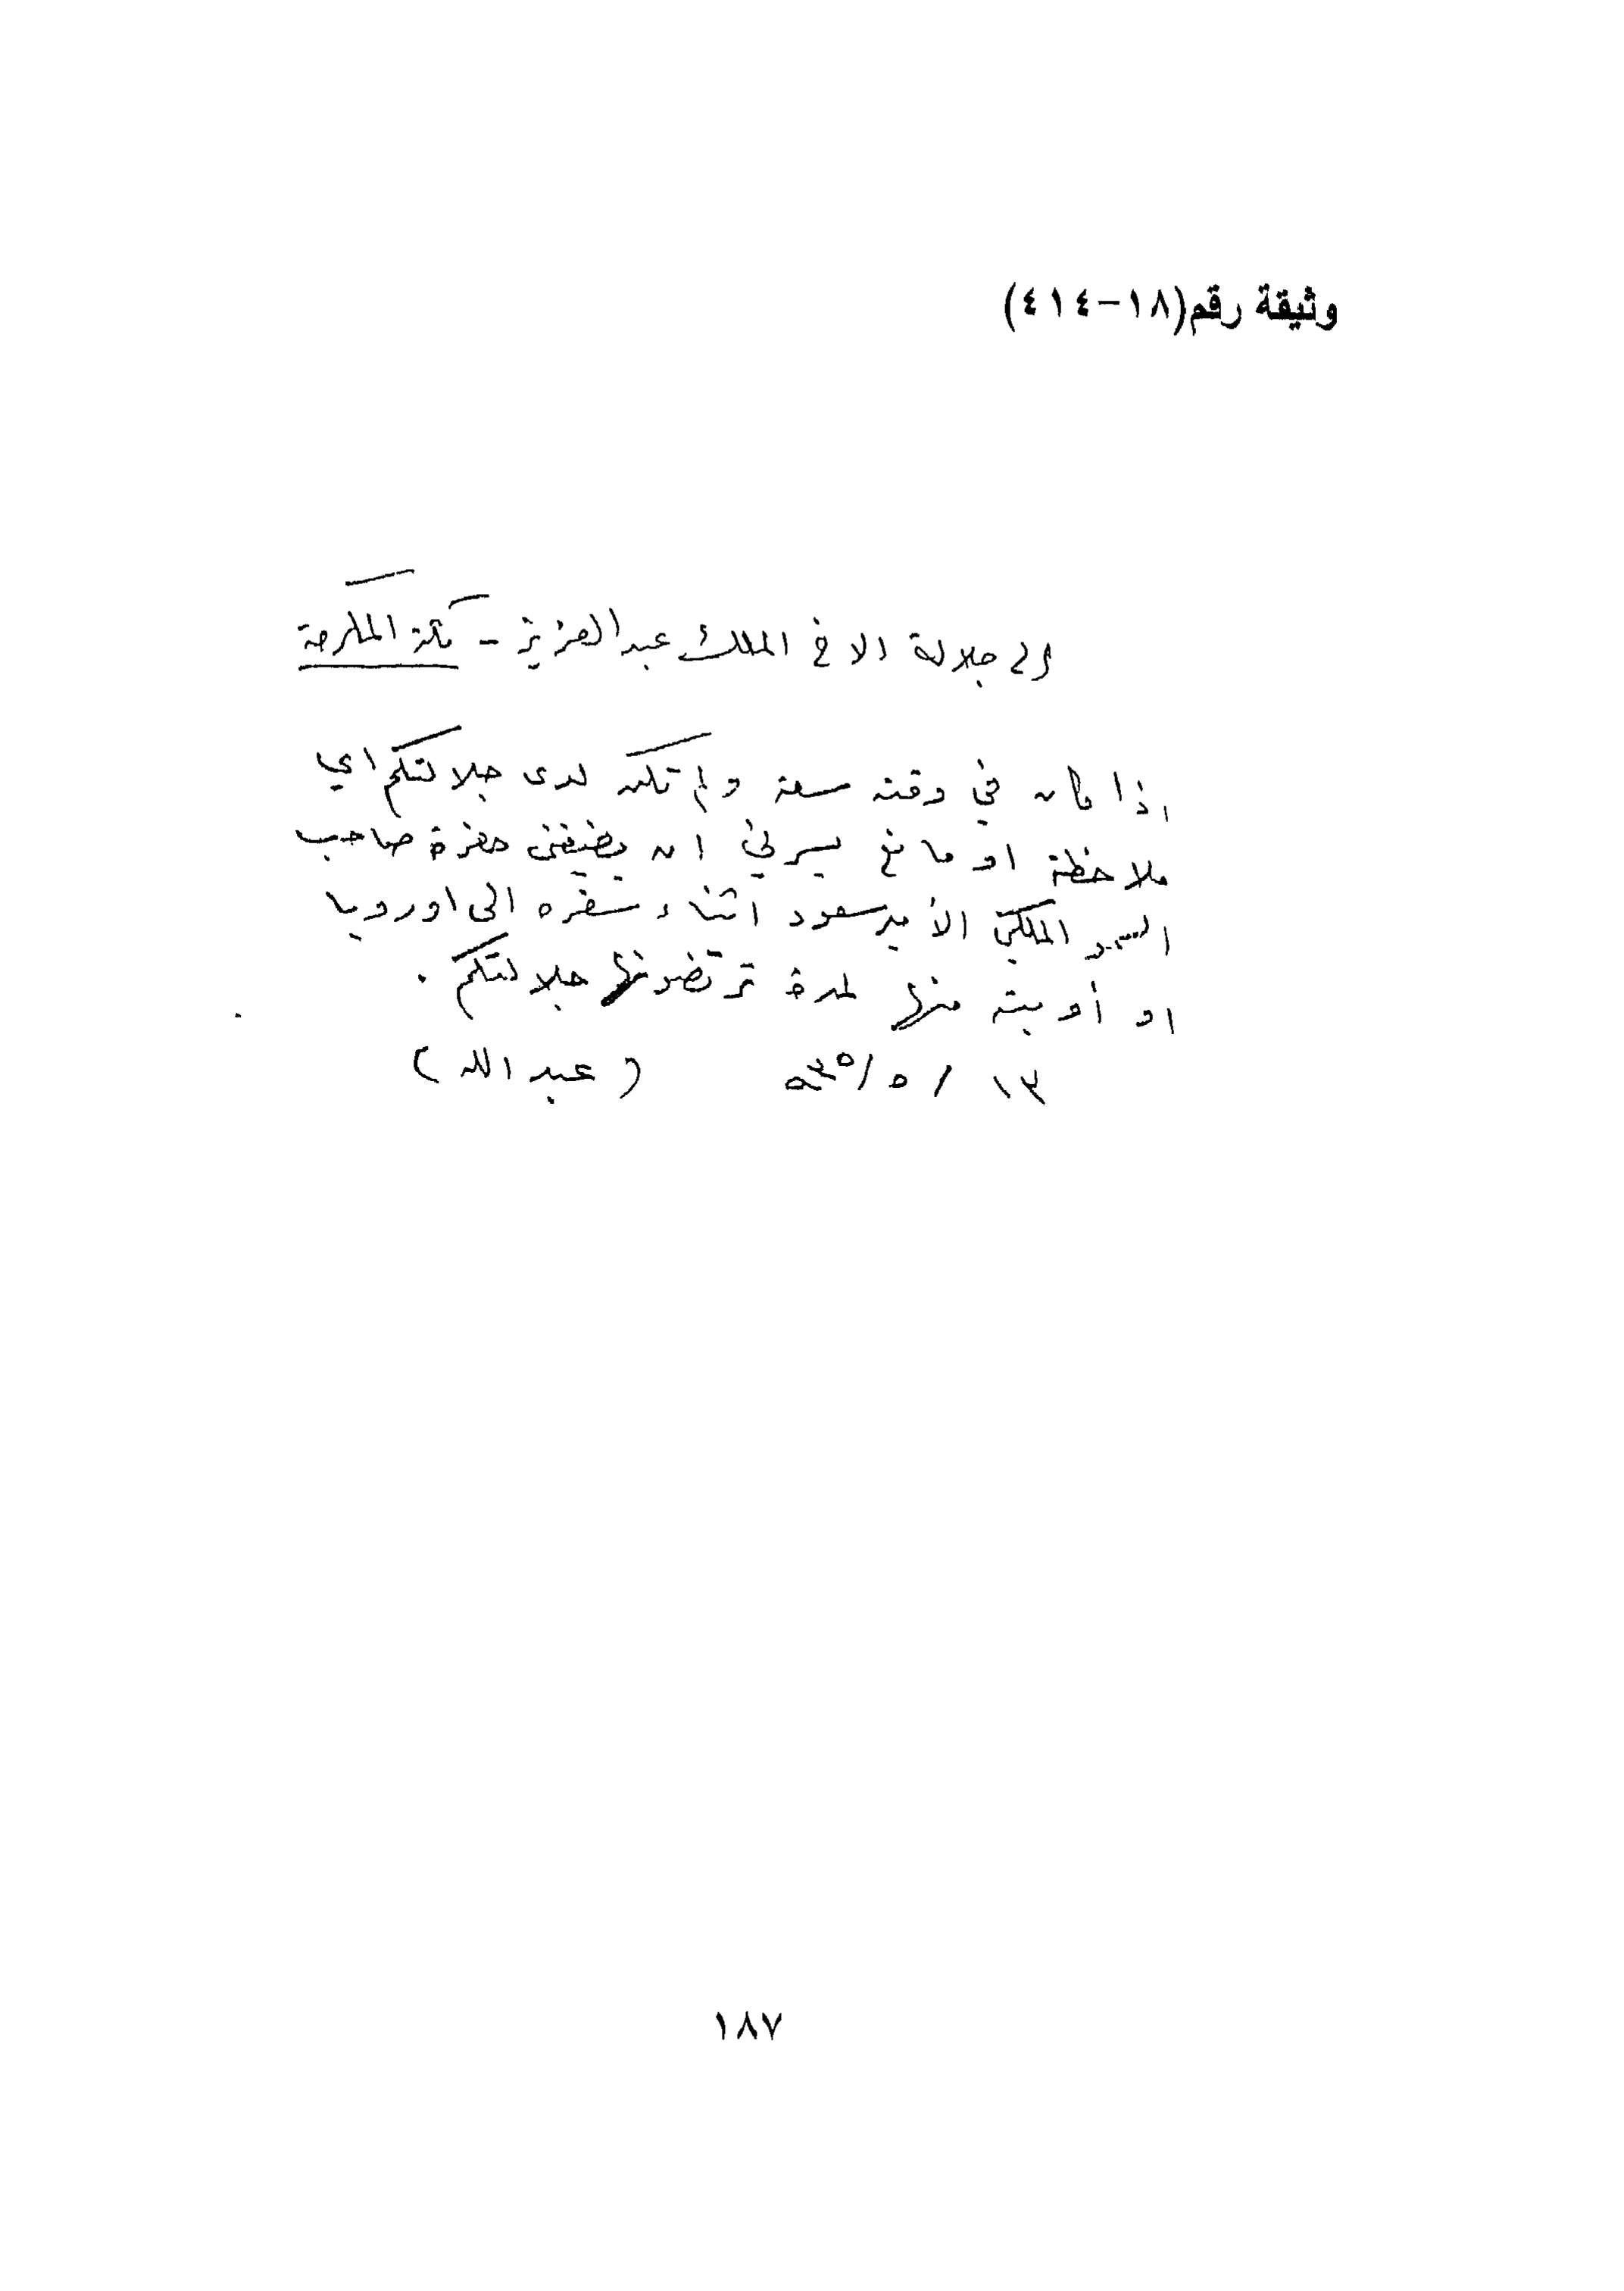 وثيقة رقم(١٨-٤١٤)
الى جلالة الاخ الملك عبدالعزيز - مكة المكرمة
اذا كان في وقته سعة ولم تكن لدى جلالتكم اي
ملاحظة او مانع يسرني ان يضيفني حضرة صاحب
السمو الملكي الأمير سعود اثناء سفره الى اوروبا
او أوبته منها لمدة ترتضونها جلالتكم .
١٣ / ٥ / ٩٣٥ (عبد الله)
١٨٧